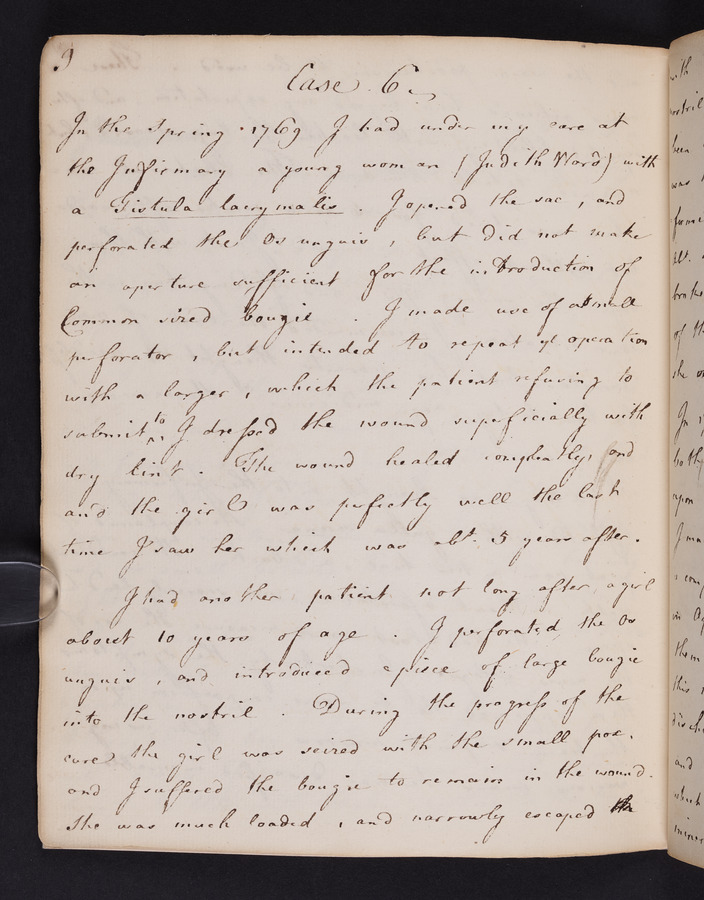 9
Case 6.
In the Spring 1769 I had under my care at
the Infirmary a young woman (Judith Ward) with
a Fistula lacrymalis. I opened the sac, and
perforated the Os unguis, but did not make
an aperture sufficient for the introduction of
Common sized bougie. I made use of a small
perforator, but intended to repeat ye operation
with a larger, which the patient refusing to
submit to I dressed the wound superficially with
dry lint. The wound healed compleatly, and
and the girl was perfectly well the last
time I saw her which was abt. 5 years after.
I had another patient not long after, a girl
about 10 years of age. I perforated the Os
unguis, and introduced a piece of large bougie
into the nostril. During the progress of the
cure the girl was seized with the small pox.
and I suffered the bougie to remain in the wound.
She was much loaded, and narrowly escaped